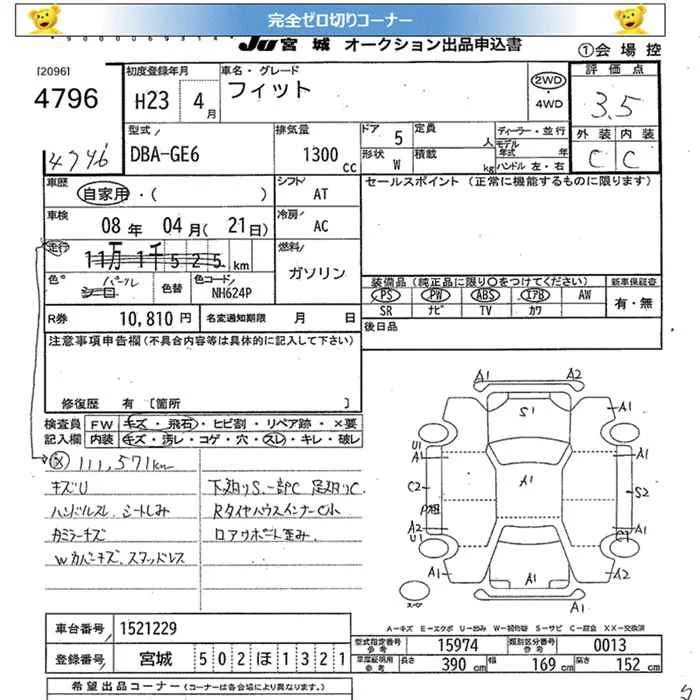 完全ゼロ切りコーナー
JU 宮城 オークション出品申込書
①会場控
[2096]
4796
4796
初度登録年月
H23 4月
車名・グレード
フィット
2WD
・4WD
評価点
3.5
外装 内装
C C
型式
DBA-GE6
排気量
1300 cc
ドア 5
定員 人
形状 W
積載 kg
ディーラー・並行
モデル年式 年
ハンドル 左・右
車歴
自家用・( )
シフト
AT
セールスポイント (正常に機能するものに限ります)
車検
08年 04月(21日)
冷房
AC
走行
11万1千525km
燃料
ガソリン
色 パープル
シロ
色替
色コード
NH624P
装備品(純正品に限り○をつけてください)
新車保証書
PS PW ABS エアB AW
SR ナビ TV カワ
有・無
R券 10,810円
名変通知期限 月 日
後日品
注意事項申告欄(不具合内容等は具体的に記入して下さい)
修復歴 有 [箇所 ]
検査員記入欄
FW キズ・飛石・ヒビ割・リペア跡・×要
内装 キズ・汚レ・コゲ・穴・スレ・キレ・破レ
111,571km
キズU
ハンドルスレ シートしみ
カミラーキズ
Wカバーキズ.スタッドレス
下廻りS.一部C 足廻りC
RタイヤハウスインナーC小
ロアサポート歪み
A1 A2
S1
A1
U1
A1
A1
C2
A1
S2
P跡
A2
U1
A1
C2
A1
A1
A2
A1
スペア
A-キズ E-エクボ U-凹み W-補修跡 S-サビ C-腐食 XX-交換済
車台番号 1521229
登録番号 宮城 502ほ1321
型式指定番号 参考 15974
類別区分番号 参考 0013
車庫証明用 参考 長さ 390cm 幅 169cm 高さ 152cm
希望出品コーナー (コーナーは各会場により異なります。)